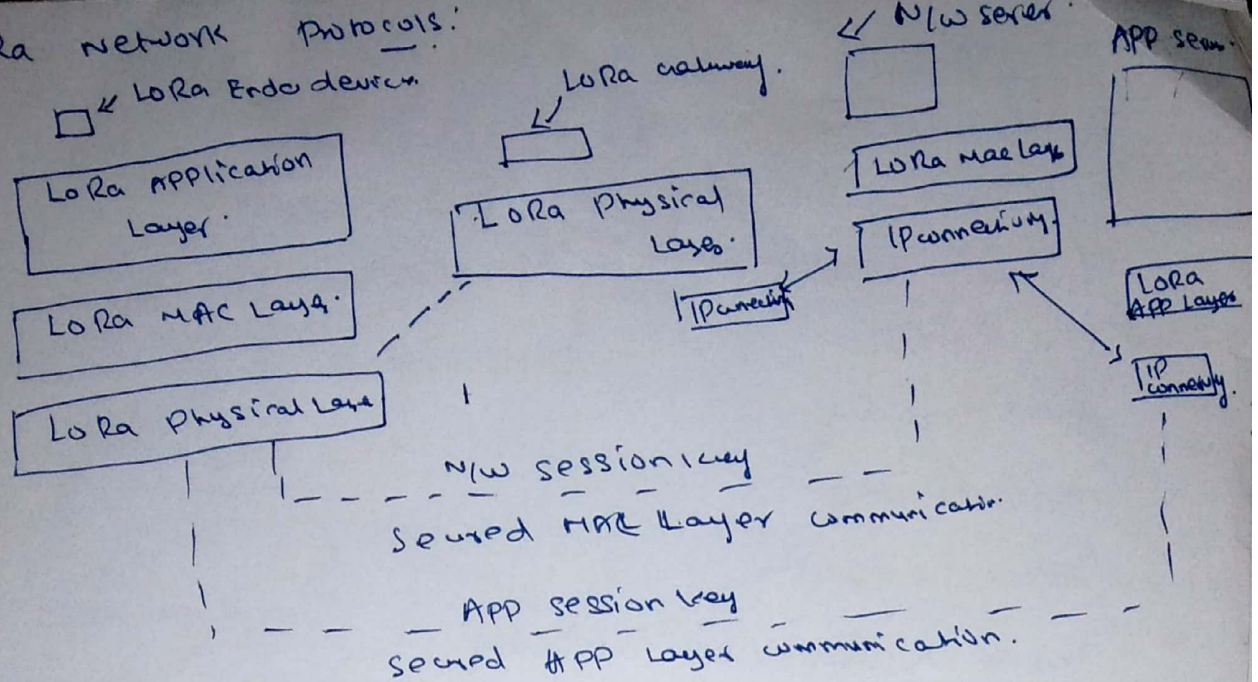 Ra Network Protocols:
LoRa Endo devices
LoRa Gateway.
N/W server.
APP
LoRa Application
Layer.
LoRa MAC Layer.
LoRa Physical Layer
LoRa Physical
Layer.
IP connectivity
LoRa Mac Layer
IP connectivity.
LoRa
APP Layer
IP
connectivity.
N/W session key
Secured MAC Layer communication.
APP session key
Secured APP Layer communication.